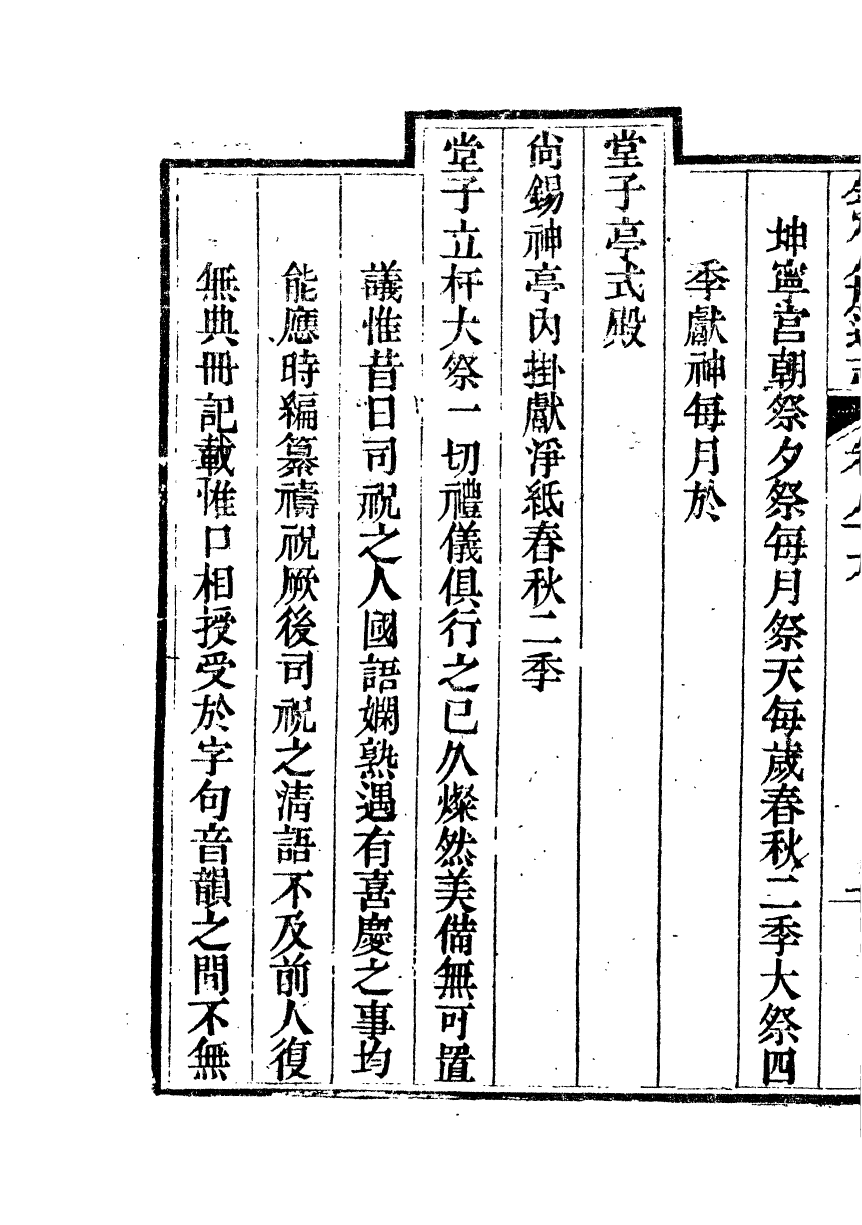 坤寧宮朝祭夕祭每月祭天每歲春秋二季大祭四
季獻神每月於
堂子亭式殿
尚錫神亭內掛獻淨紙春秋二季
堂子立杆大祭一切禮儀俱行之已久燦然美備無可置
議惟昔日司祝之人國語嫻熟遇有喜慶之事均
能應時編纂禱祝厥後司祝之清語不及前人復
無典冊記載惟口相授受於字句音韻之間不無